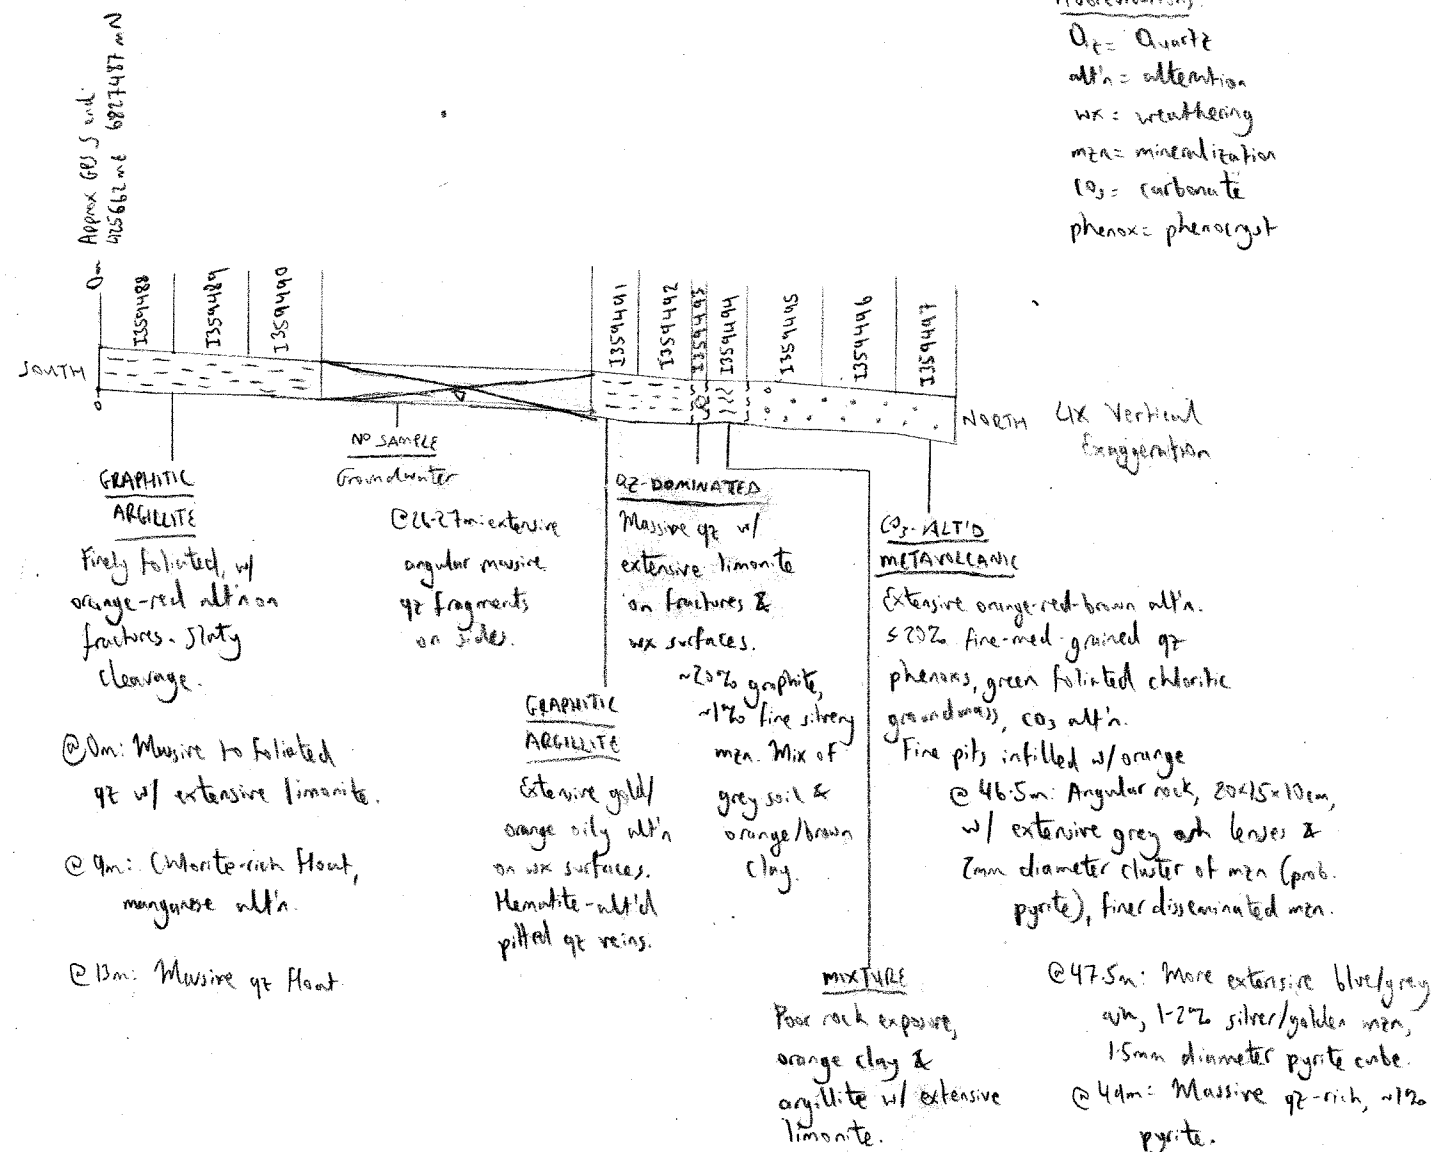 Abbreviations:
Qz = Quartz
alt'n = alteration
wx = weathering
mzn = mineralization
CO3 = carbonate
phenox = phenocryst
0m Approx GPS S end:
425662 mE 6827487 mN
I359488
I359489
I359490
I359491
I359492
I359493
I359494
I359495
I359496
I359497
SOUTH
NORTH
4X Vertical
Exaggeration
GRAPHITIC
ARGILLITE
Finely foliated, w/
orange-red alt'n on
fractures. Slaty
cleavage.
@0m: Massive to foliated
qz w/ extensive limonite.
@9m: Chlorite-rich float,
manganese alt'n.
@13m: Massive qz float.
NO SAMPLE
Groundwater
@26-27m: extensive
angular massive
qz fragments
on sides.
GRAPHITIC
ARGILLITE
Extensive gold/
orange oily alt'n
on wx surfaces.
Hematite-alt'd
pitted qz veins.
QZ-DOMINATED
Massive qz w/
extensive limonite
on fractures &
wx surfaces.
~20% graphite,
~1% fine silvery
mzn. Mix of
grey soil &
orange/brown
clay.
MIXTURE
Poor rock exposure,
orange clay &
argillite w/ extensive
limonite.
CO3-ALT'D
METAVOLCANIC
Extensive orange-red-brown alt'n.
≤20% fine-med-grained qz
phenoxs, green foliated chloritic
groundmass, CO3 alt'n.
Fine pits infilled w/ orange
@ 46.5m: Angular rock, 20x15x10cm,
w/ extensive grey ash lenses &
2mm diameter cluster of mzn (prob.
pyrite), finer disseminated mzn.
@47.5m: More extensive blue/grey
ash, 1-2% silver/golden mzn,
1.5mm diameter pyrite cube.
@ 49m: Massive qz-rich, ~1%
pyrite.